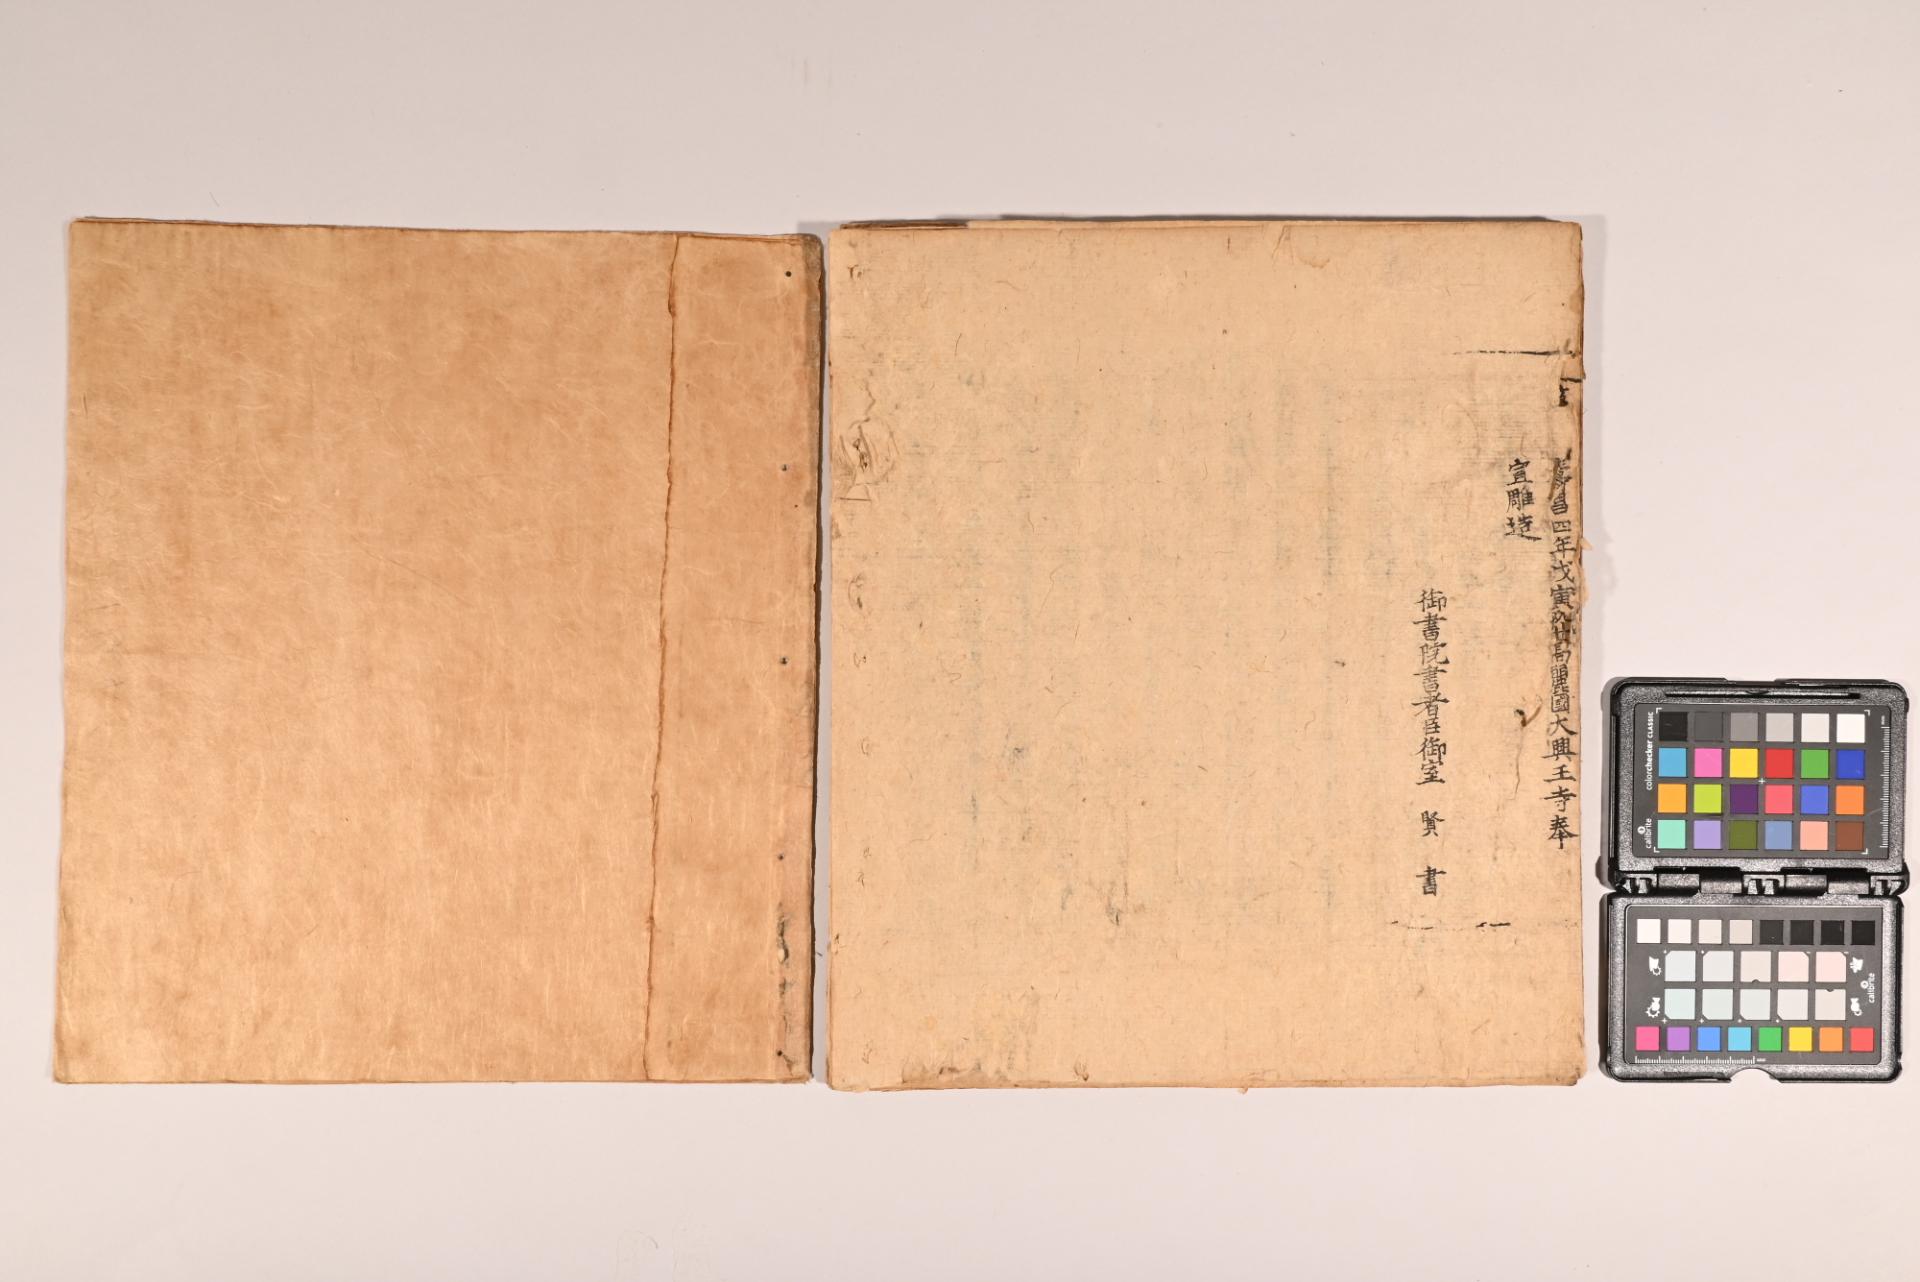 壽昌四年戊寅歲高麗國大興王寺奉
宣雕造
御書院書者臣御室 賢 書
colorchecker CLASSIC
calibrite
calibrite